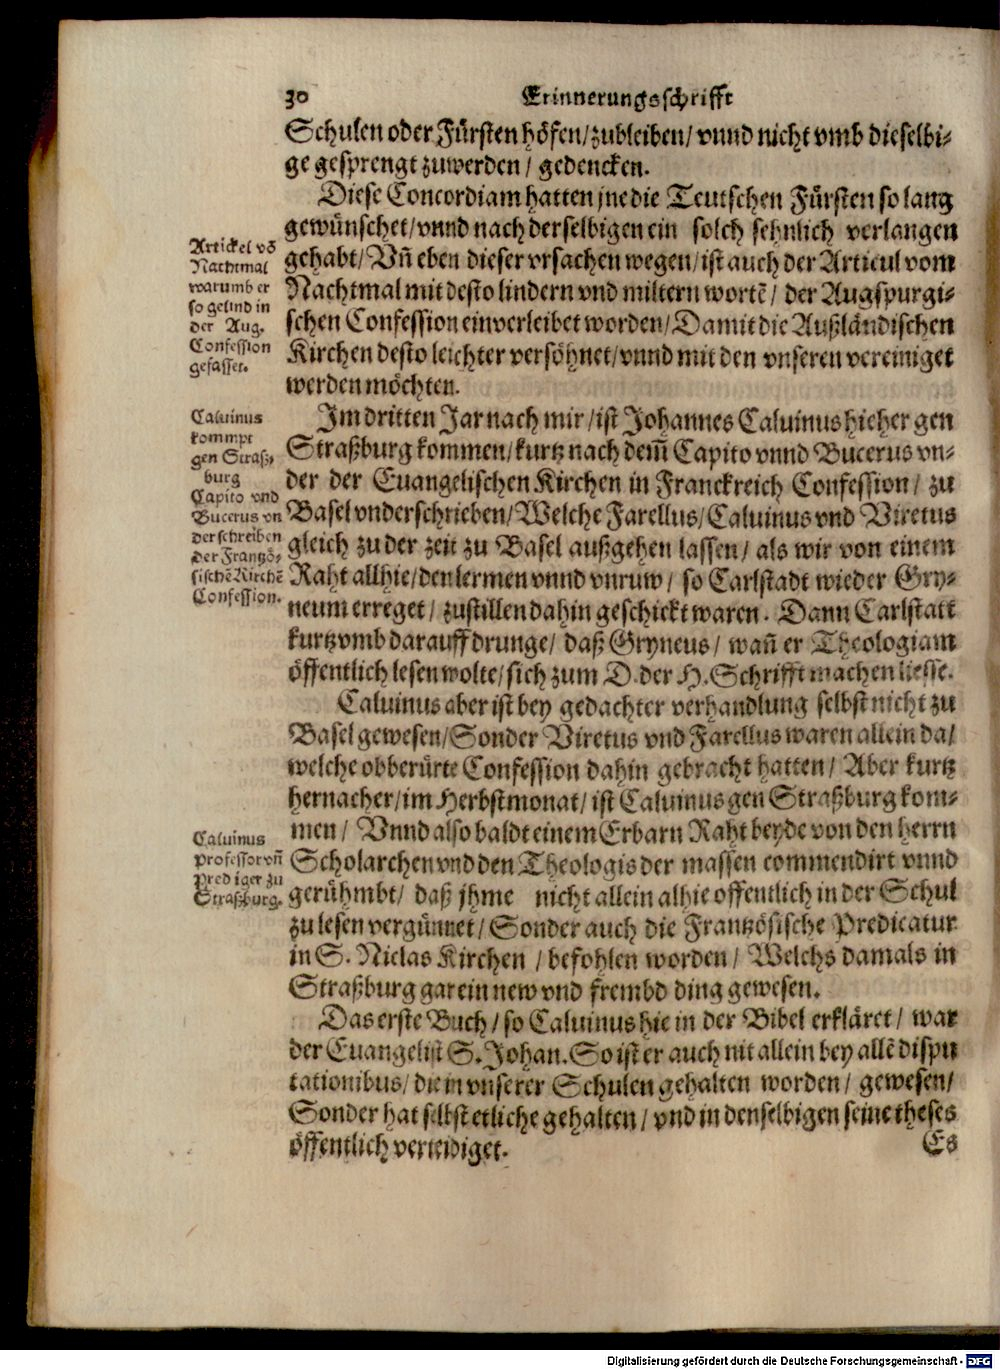 30
Erinnerungsschrifft
Schulen oder Fürsten höfen/zubleiben/vnnd nicht vmb dieselbi-
ge gesprengt zuwerden/ gedencken.
Diese Concordiam hatten jne die Teutschen Fürsten so lang
gewünschet/vnnd nach derselbigen ein solch sehnlich verlangen
gehabt/ Vñ eben dieser vrsachen wegen/ist auch der Articul vom
Nachtmal mit desto lindern vnd miltern wortẽ/ der Augspurgi-
schen Confession einverleibet worden/Damit die Außländischen
Kirchen desto leichter versöhnet/vnnd mit den vnseren vereiniget
werden möchten.
Artickel võ
Nachtmal
warumb er
so gelind in
der Aug.
Confession
gefasset.
Im dritten Jar nach mir/ist Johannes Caluinus hieher gen
Straßburg kommen/kurtz nach dem̃ Capito vnnd Bucerus vn-
der der Euangelischen Kirchen in Franckreich Confession/ zu
Basel vnderschrieben/Welche Farellus/Caluinus vnd Viretus
gleich zu der zeit zu Basel außgehen lassen/ als wir von einem
Raht allhie/den lermen vnnd vnruw/ so Carlstadt wieder Gry-
neum erreget/ zustillen dahin geschickt waren. Dann Carlstatt
kurtzvmb darauff drunge/ daß Gryneus/ wañ er Theologiam
öffentlich lesen wolte/sich zum D. der H. Schrifft machen liesse.
Caluinus
kommpt
gen Straß-
burg
Capito vnd
Bucerus vn
derschreiben
der Frantzö-
sischẽ Kirchẽ
Confession.
Caluinus aber ist bey gedachter verhandlung selbst nicht zu
Basel gewesen/Sonder Viretus vnd Farellus waren allein da/
welche obberürte Confession dahin gebracht hatten/ Aber kurtz
hernacher/im Herbstmonat/ist Caluinus gen Straßburg kom-
men/ Vnnd also baldt einem Erbarn Raht beyde von den herrn
Scholarchen vnd den Theologis der massen commendirt vnnd
gerühmbt/ daß jhme nicht allein alhie offentlich in der Schul
zu lesen vergünnet/ Sonder auch die Frantzösische Predicatur
in S. Niclas Kirchen / befohlen worden/ Welchs damals in
Straßburg gar ein new vnd frembd ding gewesen.
Caluinus
professor vñ
Prediger zu
Straßburg.
Das erste Buch/ so Caluinus hie in der Bibel erkläret/ war
der Euangelist S. Johan. So ist er auch nit allein bey allẽ dispu
tationibus/ die in vnserer Schulen gehalten worden/ gewesen/
Sonder hat selbst etliche gehalten/ vnd in denselbigen seine theses
öffentlich verteidiget.
Es
Digitalisierung gefördert durch die Deutsche Forschungsgemeinschaft - DFG